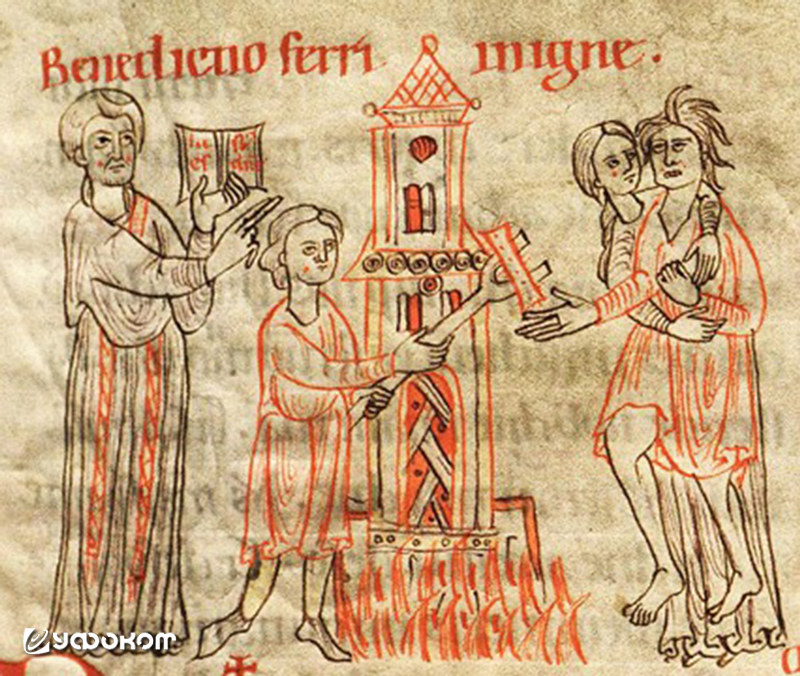 Benedictio ferri inigne.
уфоком